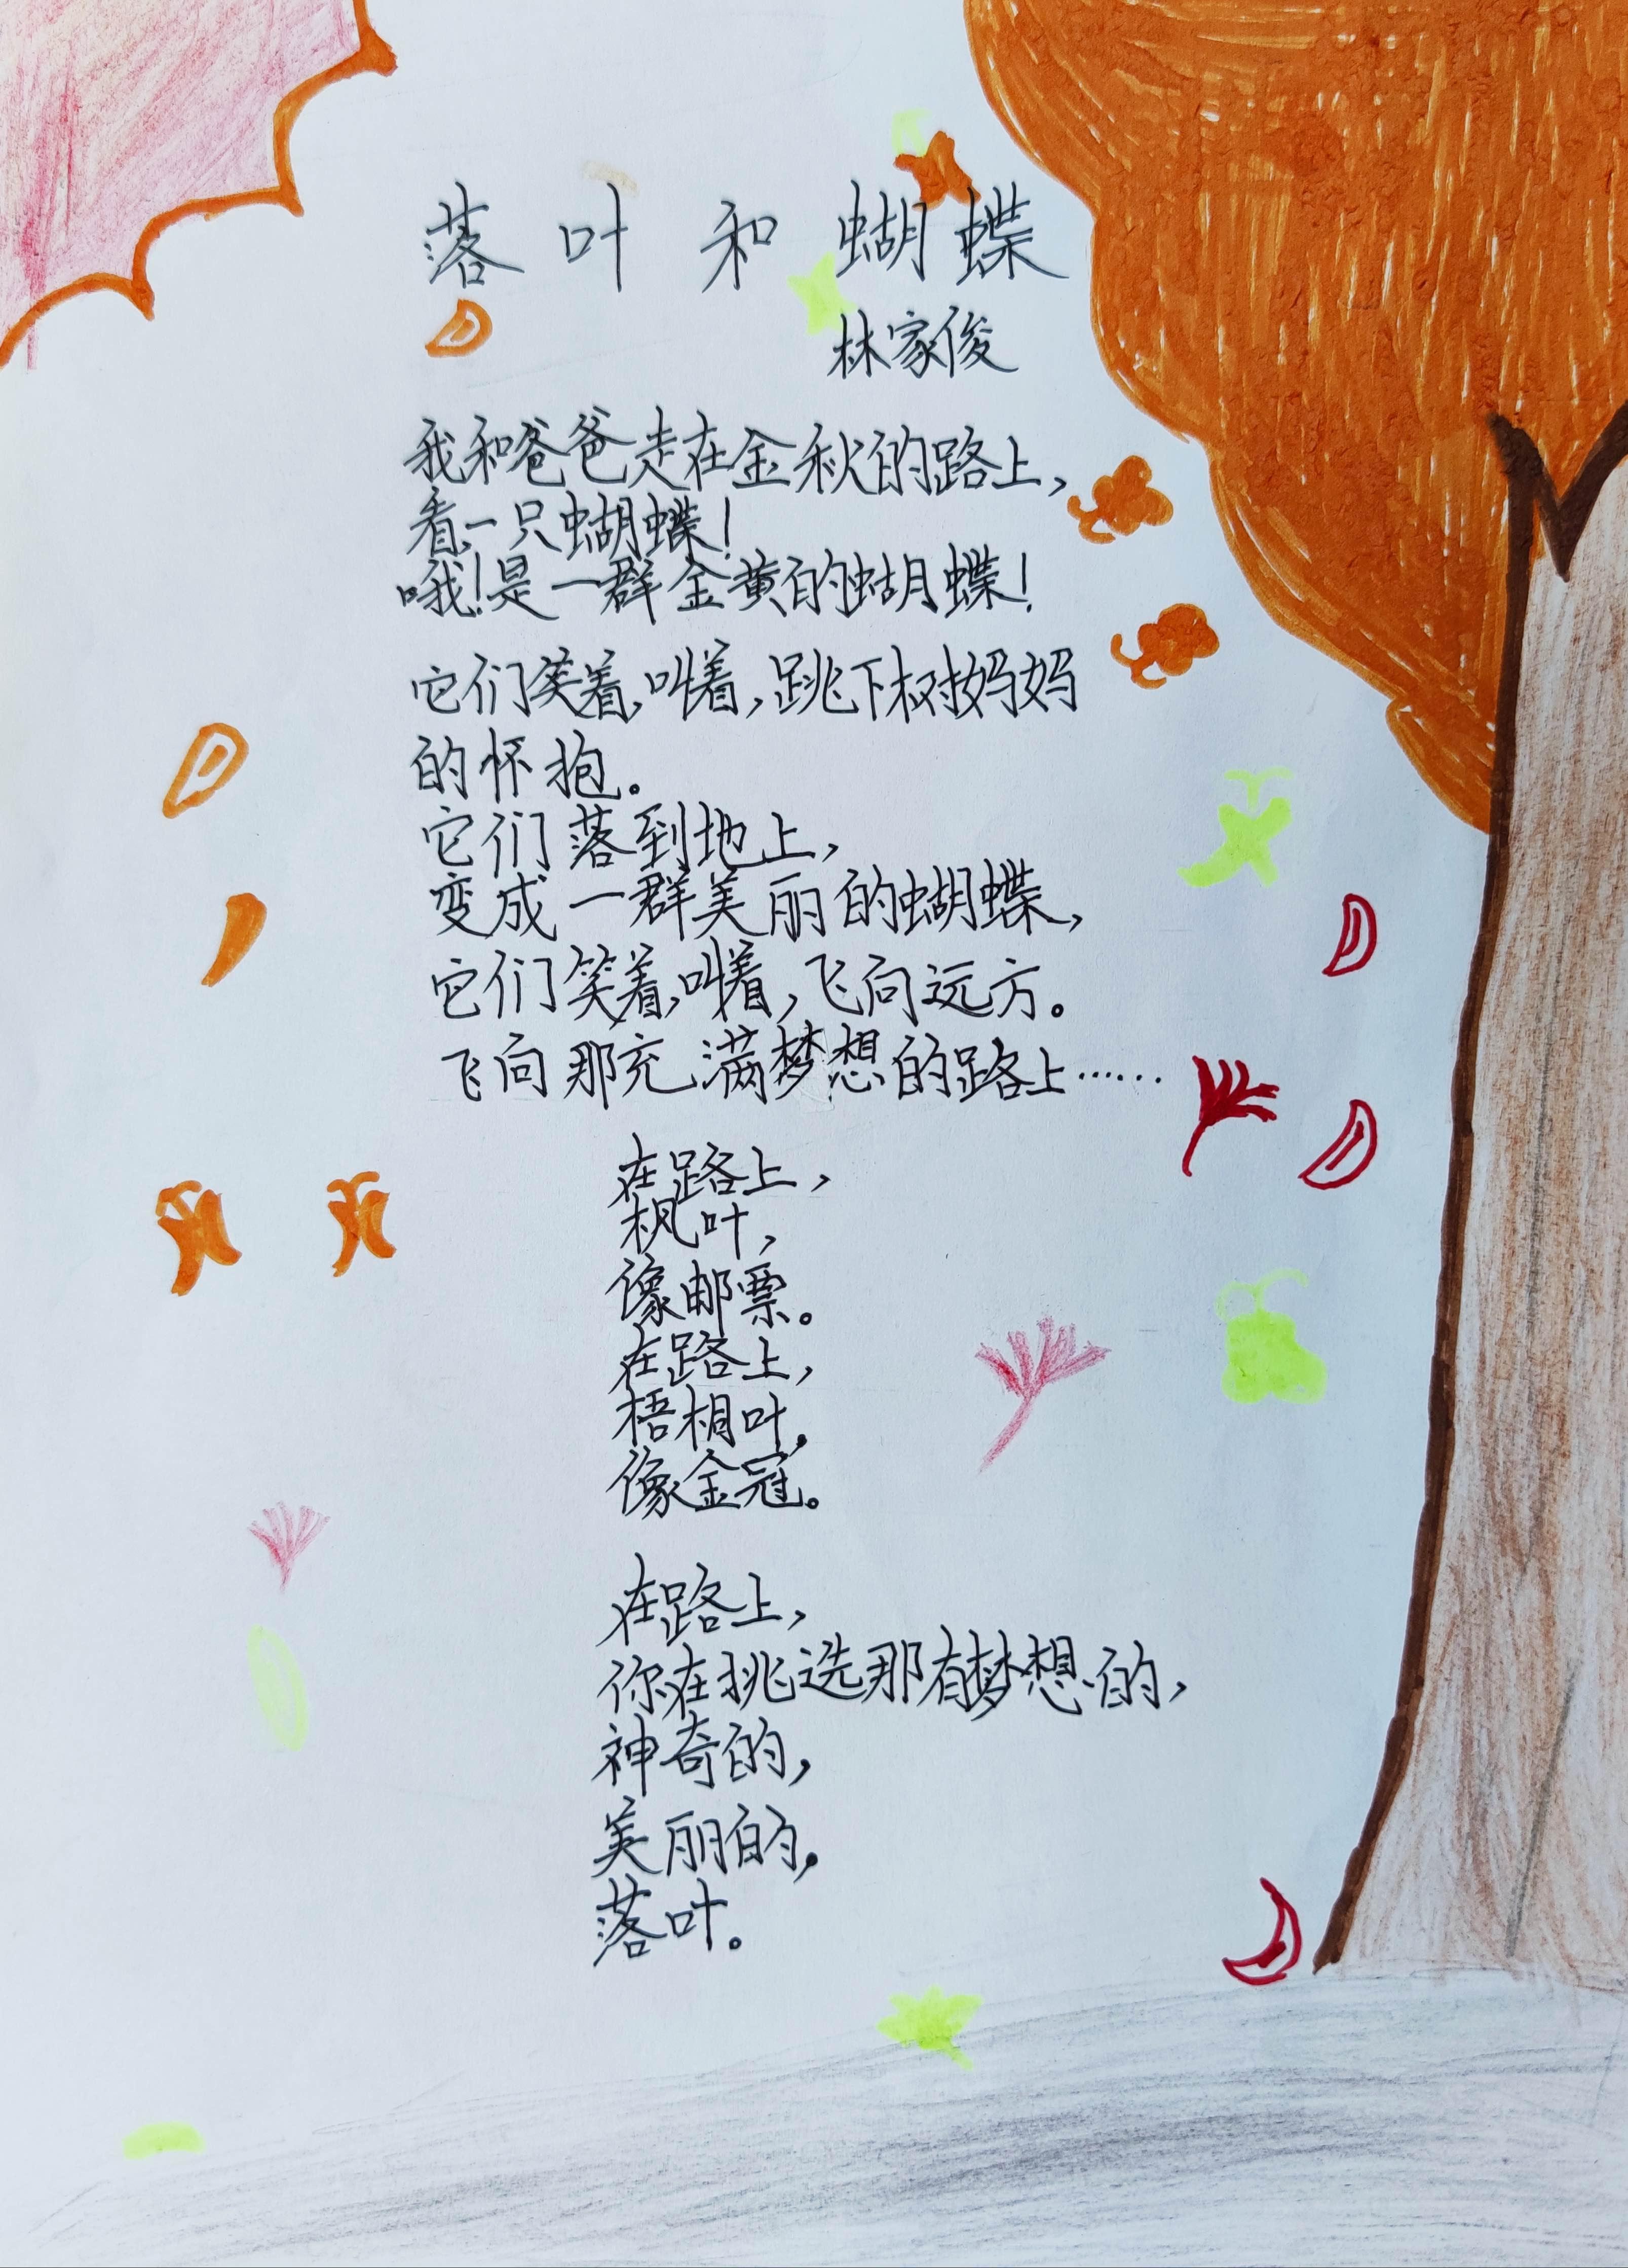 落叶和蝴蝶
林家俊
我和爸爸走在金秋的路上，
看，一只蝴蝶！
哦！是一群金黄的蝴蝶！
它们笑着，叫着，跳下树妈妈
的怀抱。
它们落到地上，
变成一群美丽的蝴蝶，
它们笑着，叫着，飞向远方。
飞向那充满梦想的路上……
在路上，
枫叶，
像邮票。
在路上，
梧桐叶，
像金冠。
在路上，
你在挑选那有梦想的，
神奇的，
美丽的，
落叶。